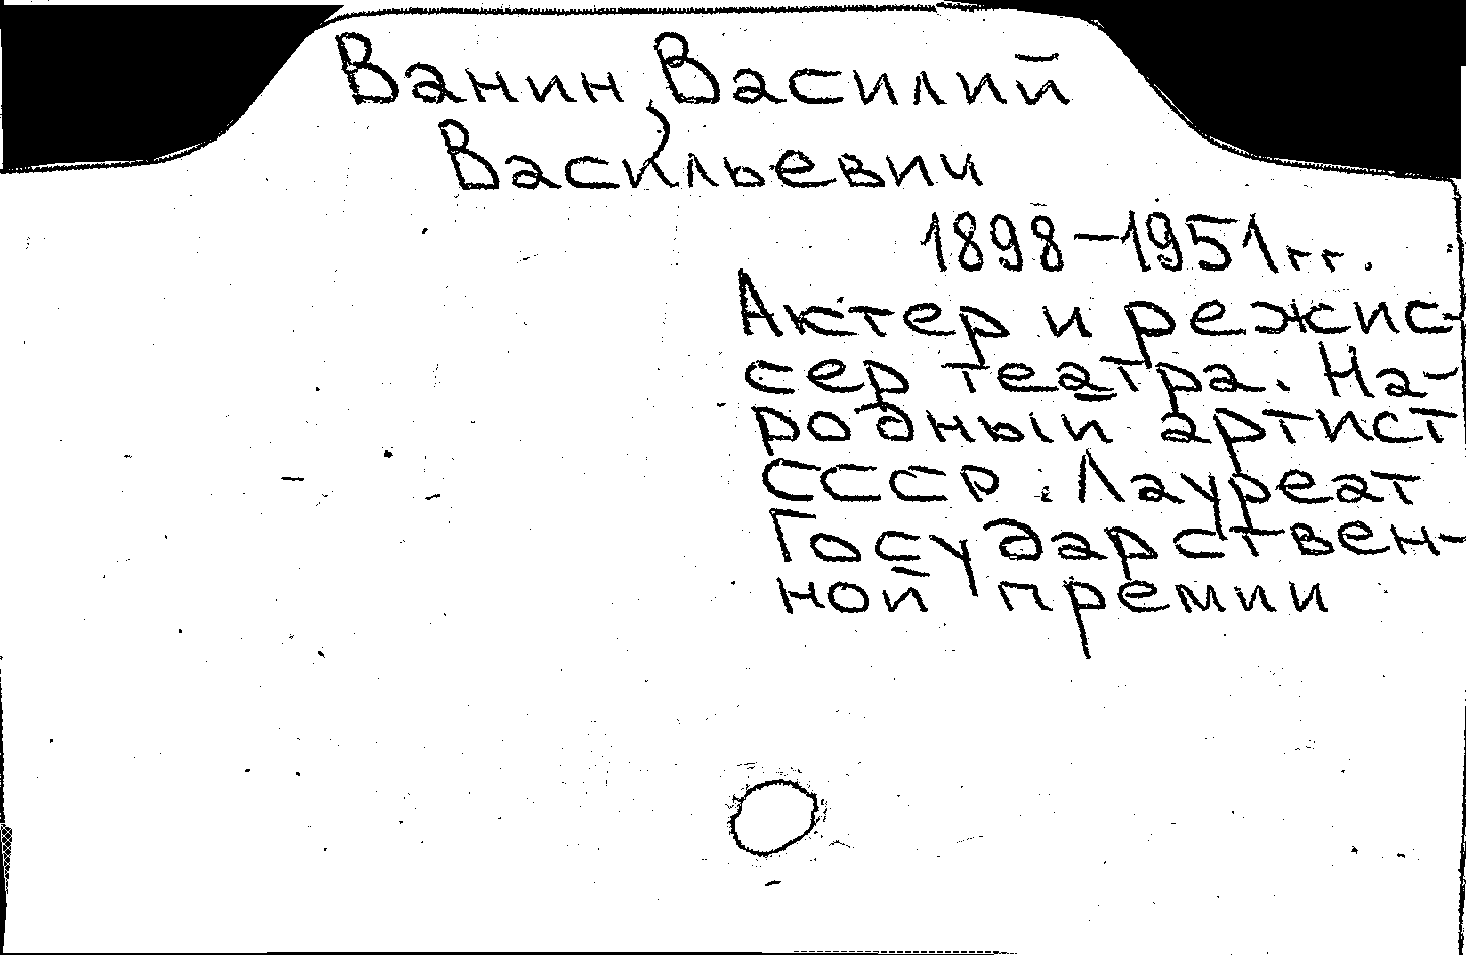 Ванин, Василий
Васильевич
1898-1951 гг.
Актер и режис-
сер театра. На-
родный артист
СССР. Лауреат
Государствен-
ной премии